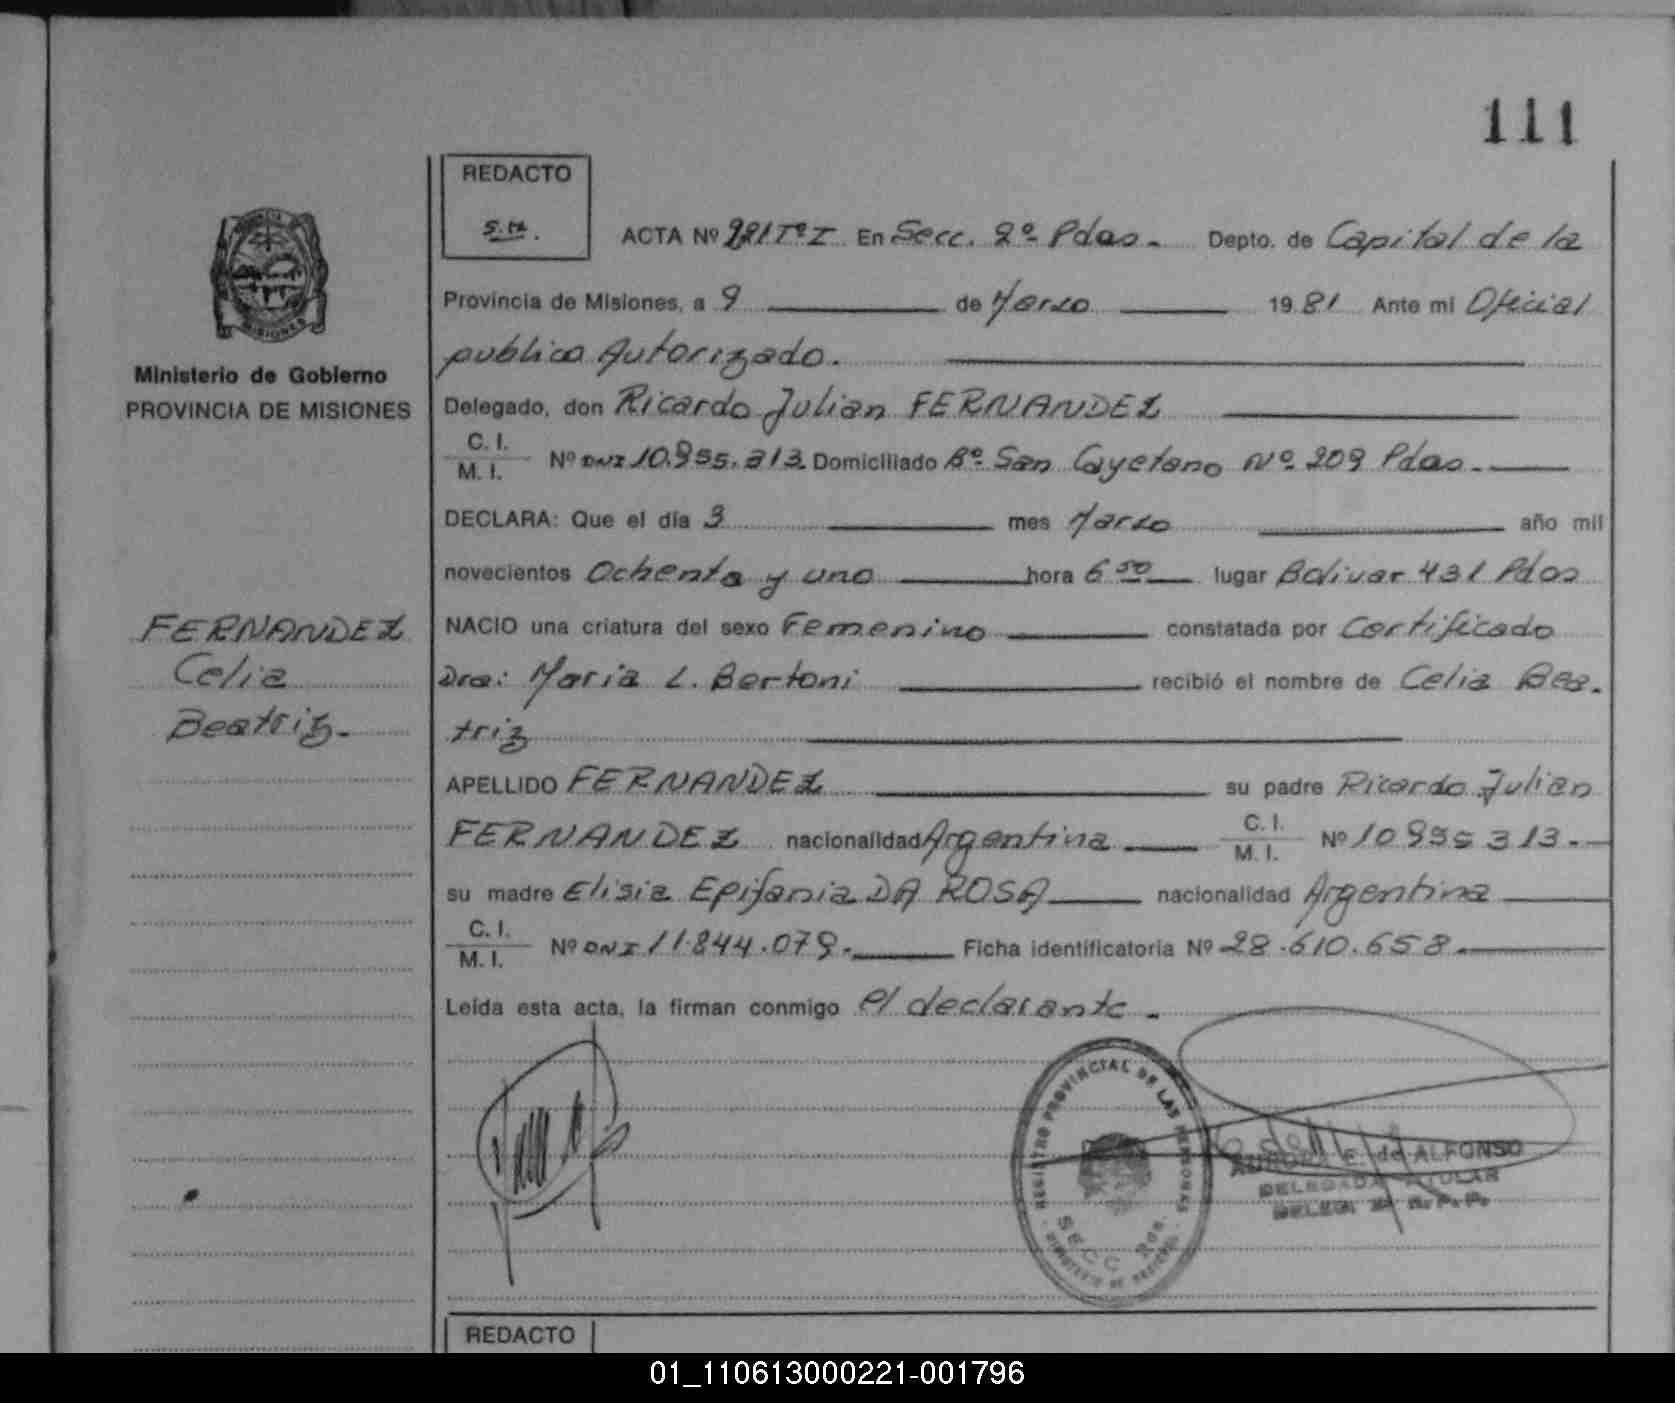 111
REDACTO
S.M.
ACTA Nº 221 TºI En Secc. 2º Pdas. Depto. de Capital de la
Provincia de Misiones, a 9 de Marzo 1981 Ante mi Oficial
publico Autorizado.
Delegado, don Ricardo Julian FERNANDEZ
C. I.
M. I. Nº DNI 10.995.313 Domiciliado Bº San Cayetano Nº 209 Pdas.
DECLARA: Que el día 3 mes Marzo año mil
novecientos Ochenta y uno hora 6 50 lugar Bolivar 431 Pdas
NACIO una criatura del sexo Femenino constatada por Certificado
Dra: Maria L. Bertoni recibió el nombre de Celia Bea-
triz
APELLIDO FERNANDEZ su padre Ricardo Julian
FERNANDEZ nacionalidad Argentina C. I. M. I. Nº 10 995 313.
su madre Elisia Epifania DA ROSA nacionalidad Argentina
C. I.
M. I. Nº DNI 11.844.079. Ficha identificatoria Nº 28.610.658.
Leída esta acta, la firman conmigo el declarante.
PROVINCIA
MISIONES
Ministerio de Gobierno
PROVINCIA DE MISIONES
FERNANDEZ
Celia
Beatriz.
REGISTRO PROVINCIAL DE LAS PERSONAS
SECC 2da.
E. de ALFONSO
DELEGADA TITULAR
R. P. P.
REDACTO
01_110613000221-001796